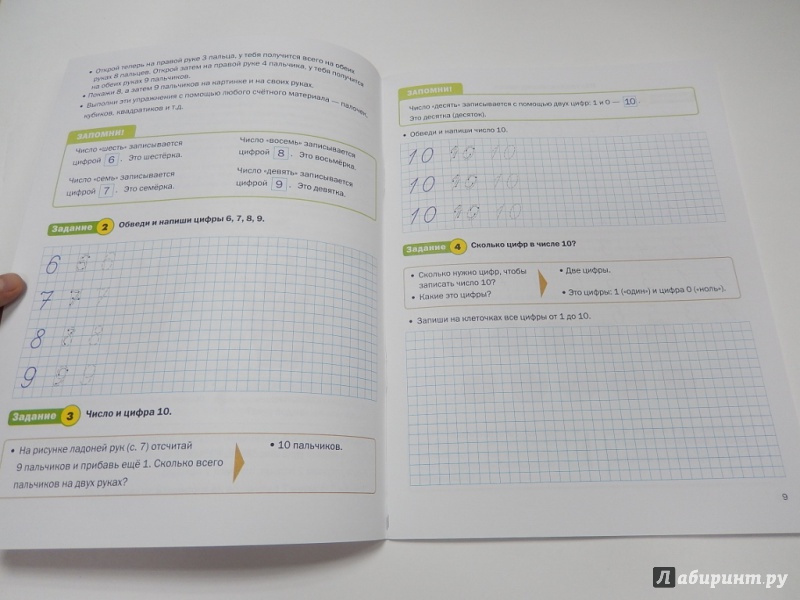 • Открой теперь на правой руке 3 пальца, у тебя получится всего на обеих
руках 8 пальцев. Открой затем на правой руке 4 пальчика, у тебя получится
на обеих руках 9 пальчиков.
• Покажи 8, а затем 9 пальчиков на картинке и на своих руках.
• Выполни эти упражнения с помощью любого счётного материала — палочек,
кубиков, квадратиков и т.д.
ЗАПОМНИ!
Число «шесть» записывается
цифрой 6 . Это шестёрка.
Число «восемь» записывается
цифрой 8 . Это восьмёрка.
Число «семь» записывается
цифрой 7 . Это семёрка.
Число «девять» записывается
цифрой 9 . Это девятка.
Задание 2 Обведи и напиши цифры 6, 7, 8, 9.
6 6 6
7 7 7
8 8 8
9 9 9
Задание 3 Число и цифра 10.
• На рисунке ладоней рук (с. 7) отсчитай
9 пальчиков и прибавь ещё 1. Сколько всего
пальчиков на двух руках?
• 10 пальчиков.
ЗАПОМНИ!
Число «десять» записывается с помощью двух цифр: 1 и 0 — 10 .
Это десятка (десяток).
• Обведи и напиши число 10.
10 10 10
10 10 10
10 10 10
Задание 4 Сколько цифр в числе 10?
• Сколько нужно цифр, чтобы
записать число 10?
• Какие это цифры?
• Две цифры.
• Это цифры: 1 («один») и цифра 0 («ноль»).
• Запиши на клеточках все цифры от 1 до 10.
9
Лабиринт.ру